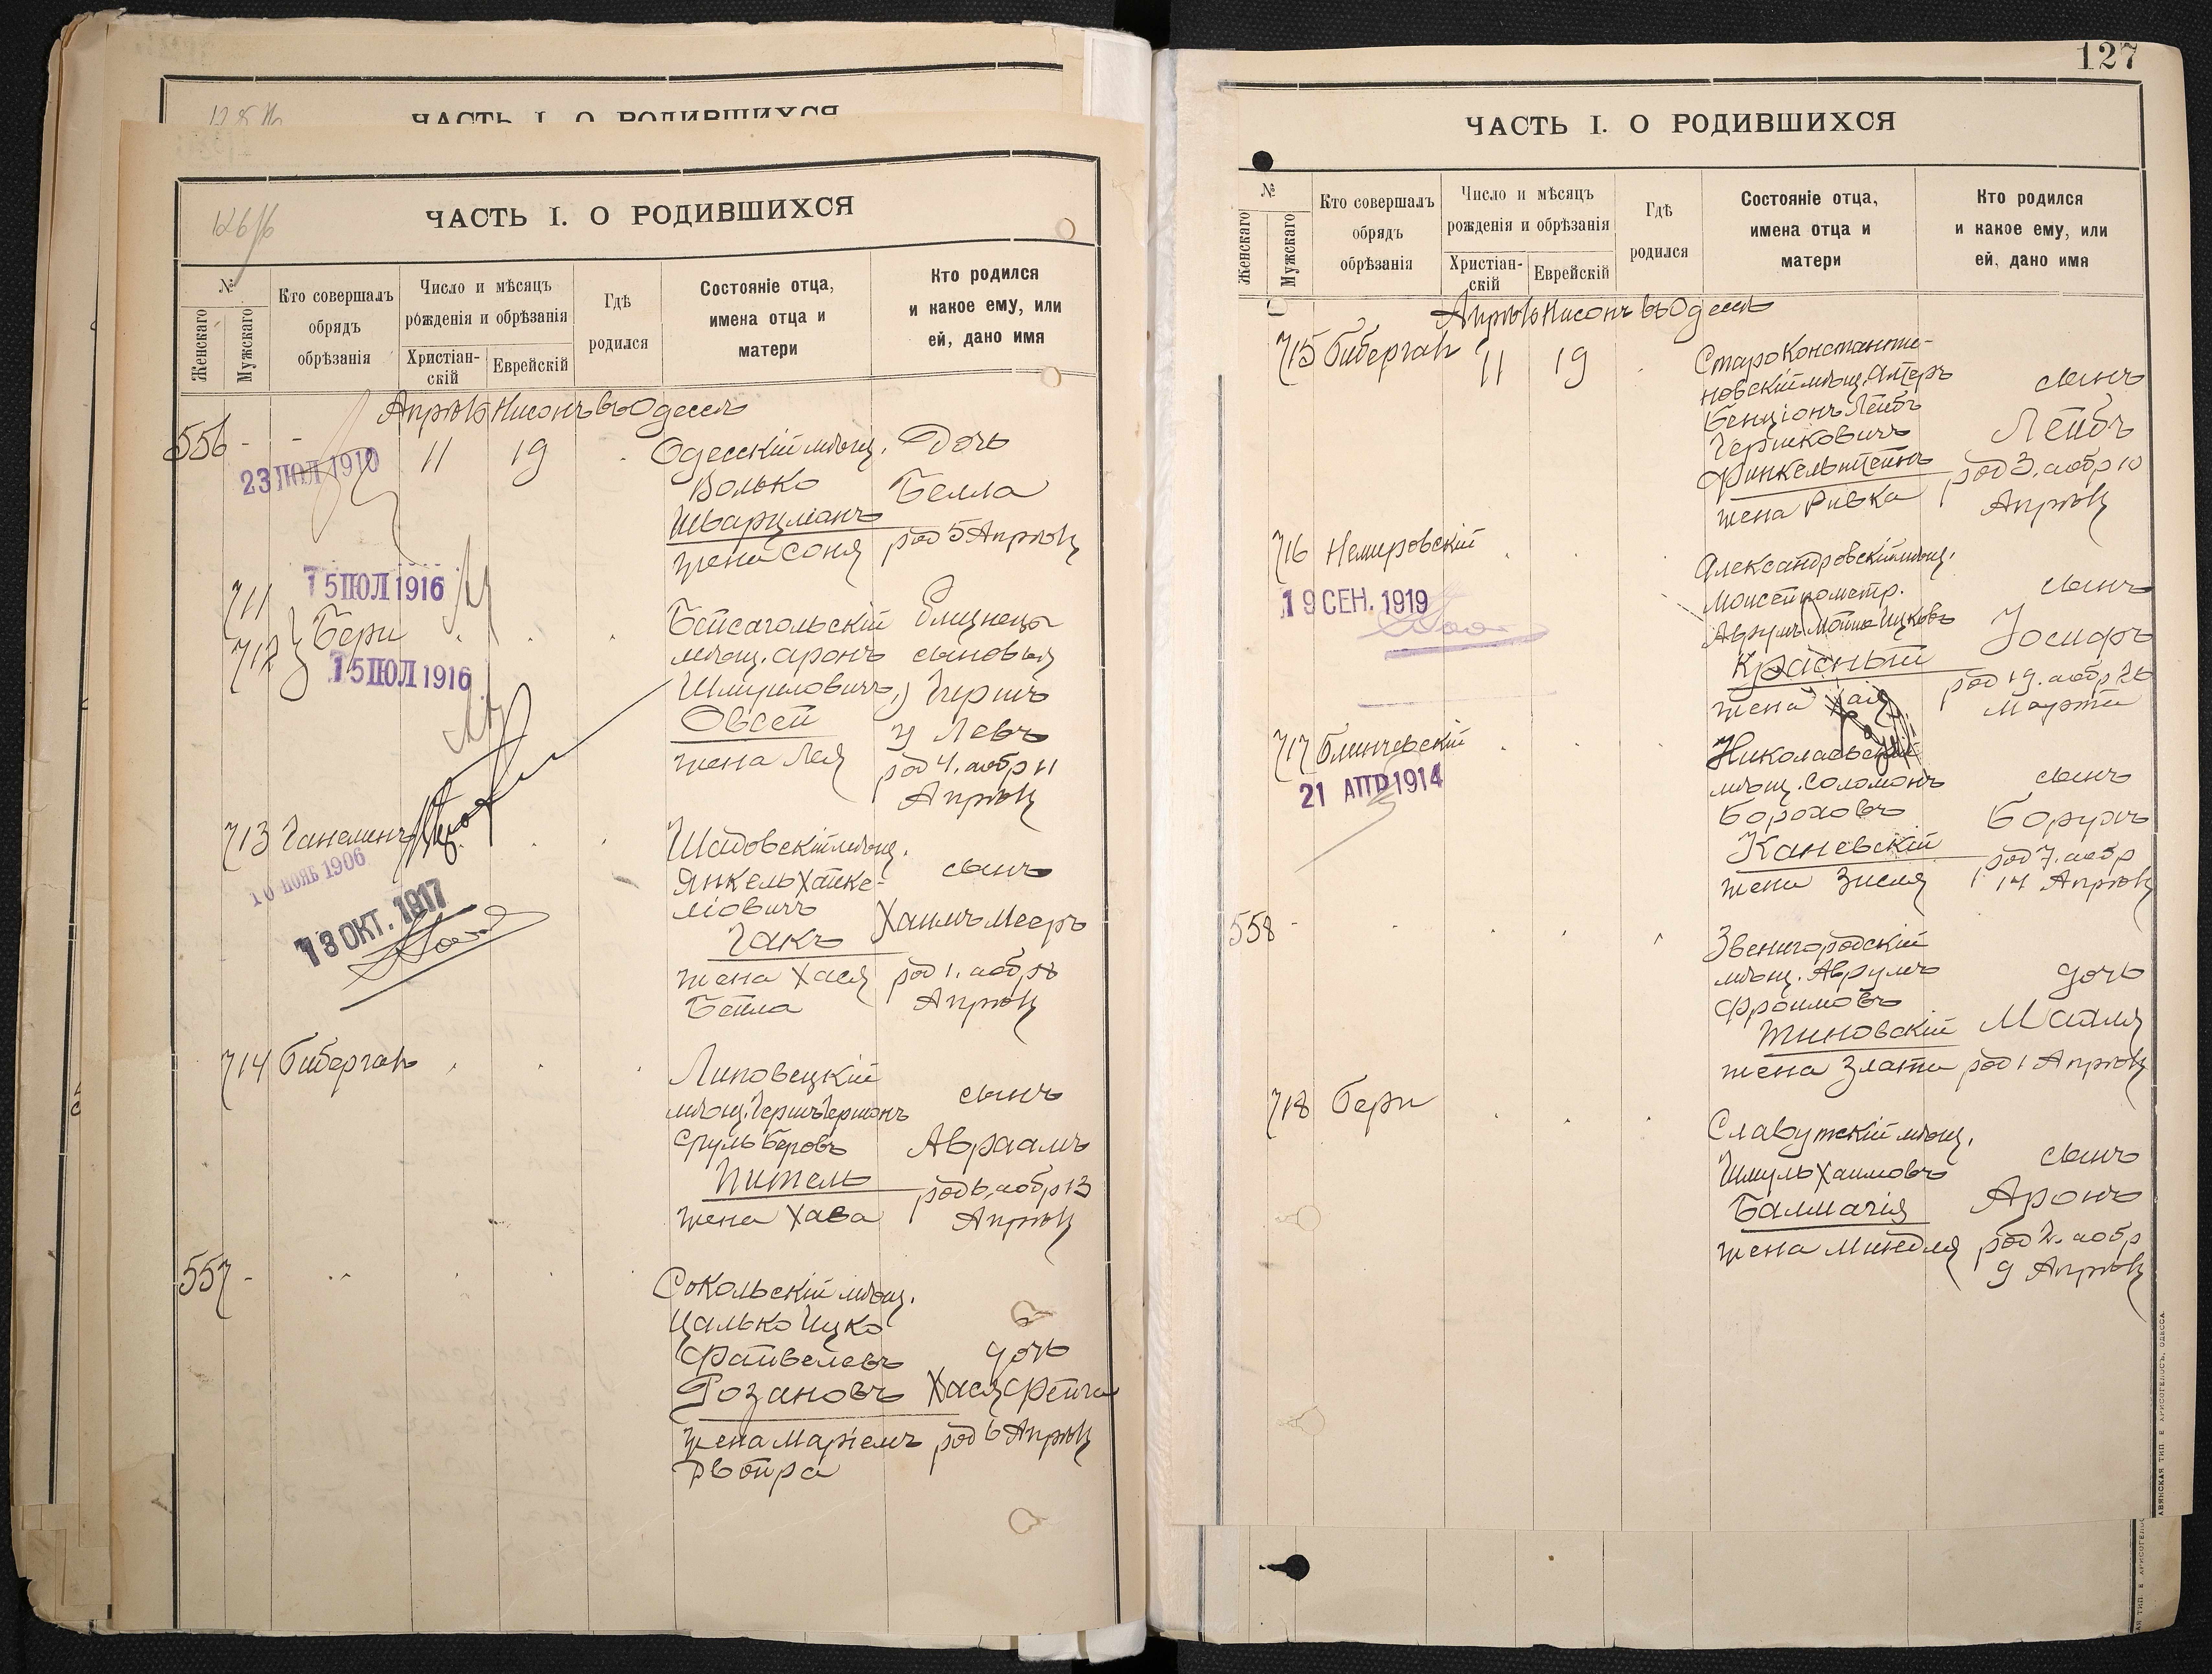 ЧАСТЬ I. О РОДИВШИХСЯ
126/б
ЧАСТЬ I. О РОДИВШИХСЯ
№
Женскаго
Мужскаго
Кто совершалъ
обрядъ
обрѣзанія
Число и мѣсяцъ
рожденія и обрѣзанія
Христіан-
скій
Еврейскій
Гдѣ
родился
Состояніе отца,
имена отца и
матери
Кто родился
и какое ему, или
ей, дано имя
Апрѣль Нисонъ въ Одессѣ
556 - -
23 ІЮЛ 1910
11 19
Одесскій мѣщ.
Волько
Шварцманъ
жена Соня
Дочь
Белла
род 5 Апрѣля
711
712
15 ІЮЛ 1916
Бери
15 ІЮЛ 1916
Бейсагольскій
мѣщ. Аронъ
Шмуиловичъ
Овсей
жена Лея
Близнецы
сыновья
1) Гершъ
2) Левъ
род 4. а обр 11
Апрѣля
713 Ганелинъ
10 НОЯБ 1906
13 ОКТ. 1917
Шадовскій мѣщ.
Янкель Хацке-
ліовичъ
Гакъ
жена Хася
Бейла
сынъ
Хаимъ Мееръ
род 1. а обр 8
Апрѣля
714 Бибергаль
Липовецкій
мѣщ. Гершъ Гершонъ
Сруль Беровъ
Шитель
жена Хава
сынъ
Авраамъ
род 6. а обр 13
Апрѣля
557 -
Сокольскій мѣщ.
Цалько Ицко
Файвелевъ
Розановъ
жена Маріемъ
Двойра
дочь
Хася Фейга
род 6 Апрѣля
127
ЧАСТЬ I. О РОДИВШИХСЯ
№
Женскаго
Мужскаго
Кто совершалъ
обрядъ
обрѣзанія
Число и мѣсяцъ
рожденія и обрѣзанія
Христіан-
скій
Еврейскій
Гдѣ
родился
Состояніе отца,
имена отца и
матери
Кто родился
и какое ему, или
ей, дано имя
Апрѣль Нисонъ въ Одессѣ
715 Бибергаль 11 19
Староконстанти-
новскій мѣщ. Алтеръ
Бенціонъ Лейбъ
Гершковичъ
Финкельштейнъ
жена Ривка
сынъ
Лейбъ
род 3. а обр 10
Апрѣля
716 Немировскій
19 СЕН. 1919
Александровскій мѣщ.
Авруmъ Мотье Ицковъ
Красный
жена Хая
сынъ
Іосифъ
род 19. а обр 26
Марта
717 Блинчевскій
21 АПР 1914
Николаевскій
мѣщ. Соломонъ
Бороховъ
Каневскій
жена Зисля
сынъ
Борухъ
род 7. а обр
14 Апрѣля
558 -
Звенигородскій
мѣщ. Аврумъ
Фроимовъ
Тиновскій
жена Злата
дочь
Маля
род 1 Апрѣля
718 Бери
Славутскій мѣщ.
Шмуль Хаимовъ
Балмагія
жена Миндля
сынъ
Аронъ
род 2. а обр
9 Апрѣля